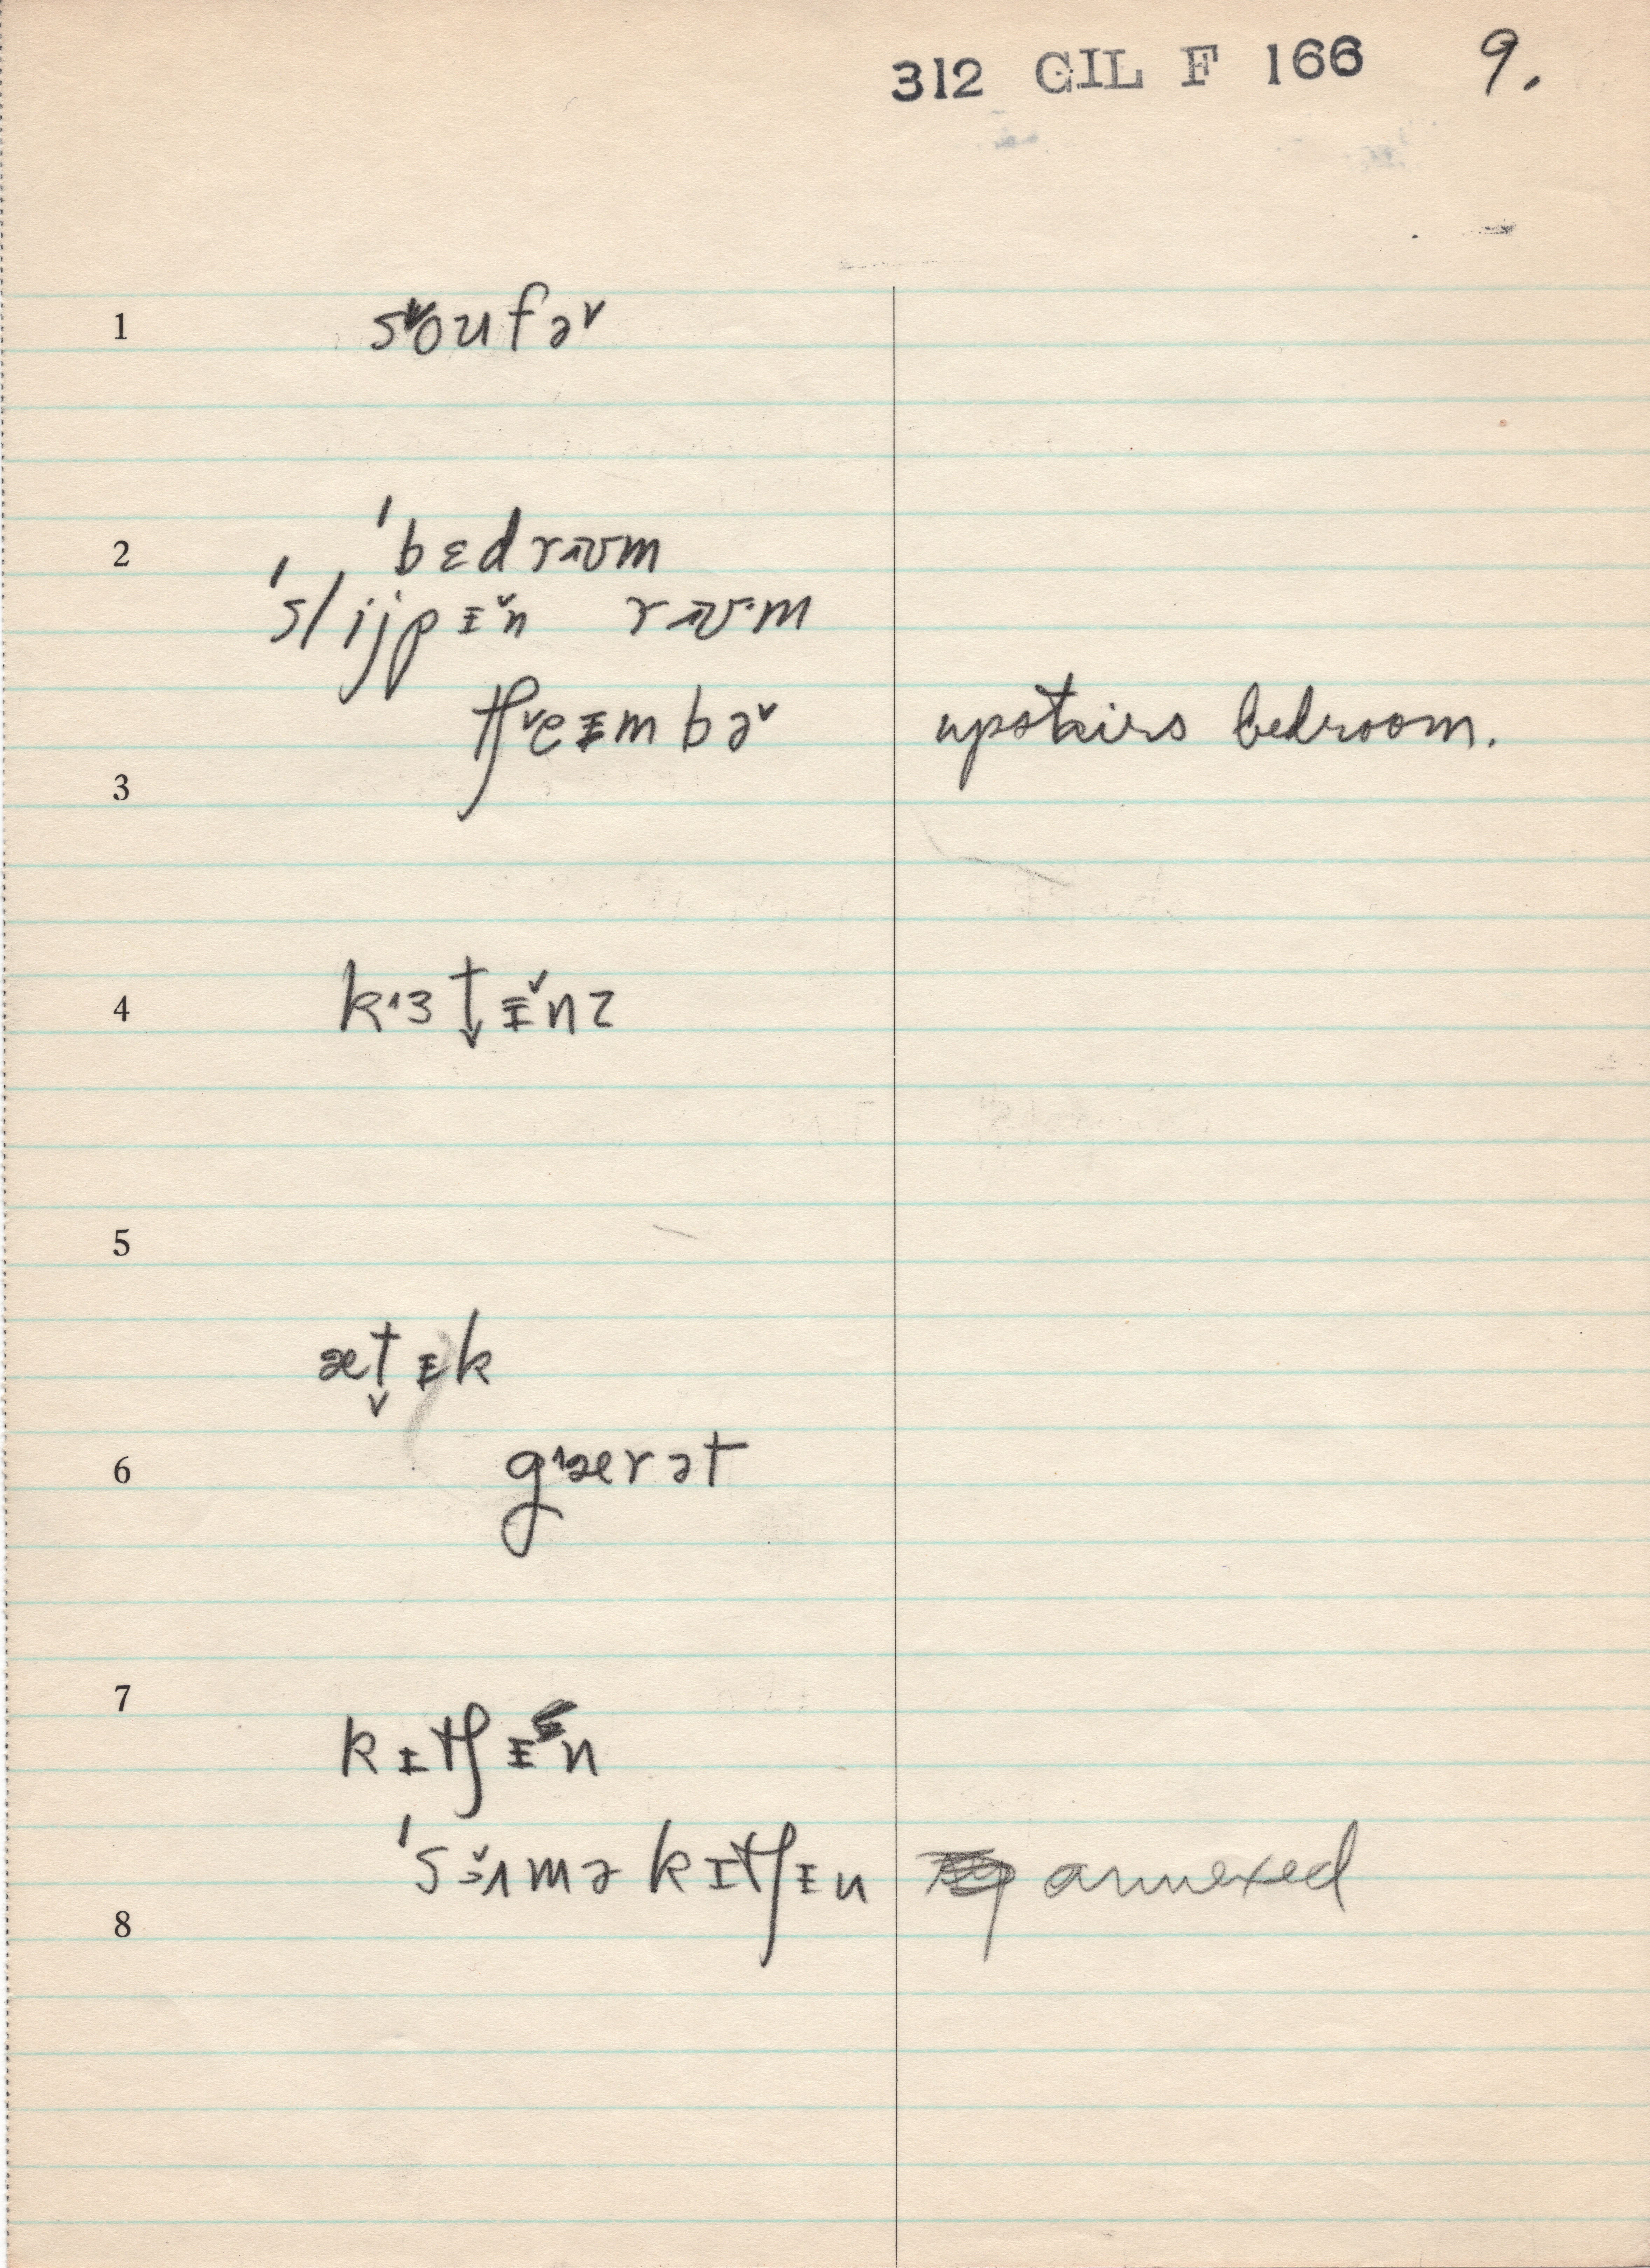 312 GIL F 166 9.
1 sˇoufəˇ
2 ˈbɛdrɪʊm
ˈslijpɪˇn rɪʊ·m
tʃˇeɪmbəˇ upstairs bedroom.
3
4 kɜtɪˇnz
5
ætɪk
6 gærət
7
kɪtʃɪn
ˈsɜˇmə kɪtʃɪn annexed
8